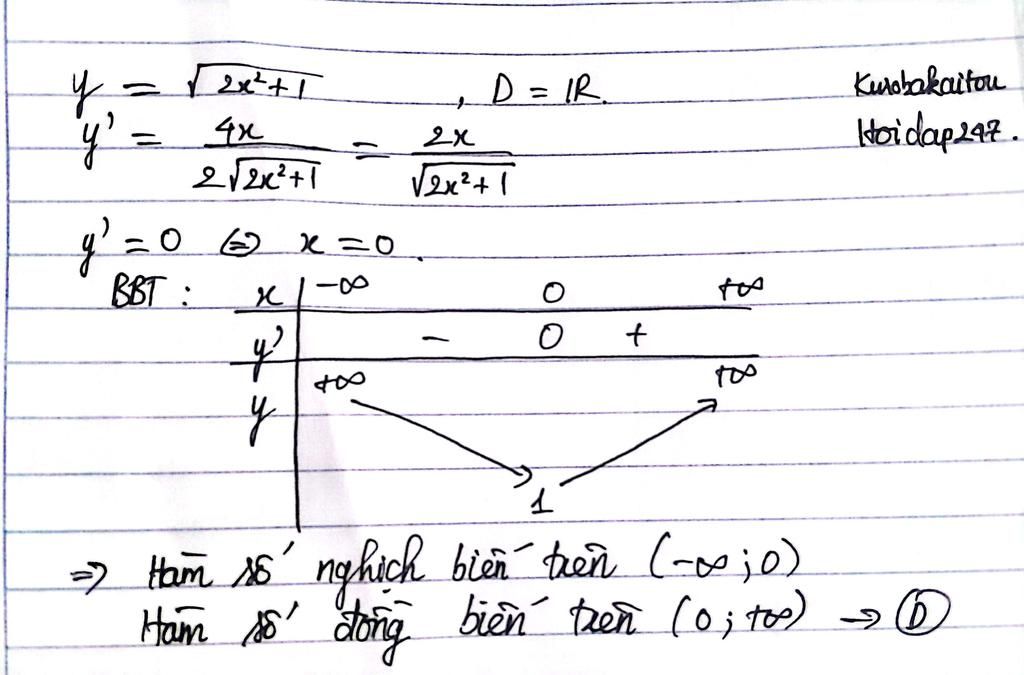 y = √(2x²+1) , D = ℝ. Kurobakaitou
y' = 4x / (2√(2x²+1)) = 2x / √(2x²+1) Hoidap247.
y' = 0 ⇔ x = 0.
BBT : x | -∞ 0 +∞
y' | - 0 +
y | +∞ +∞
1
=> Hàm số nghịch biến trên (-∞ ; 0)
Hàm số đồng biến trên (0 ; +∞) → Ⓓ